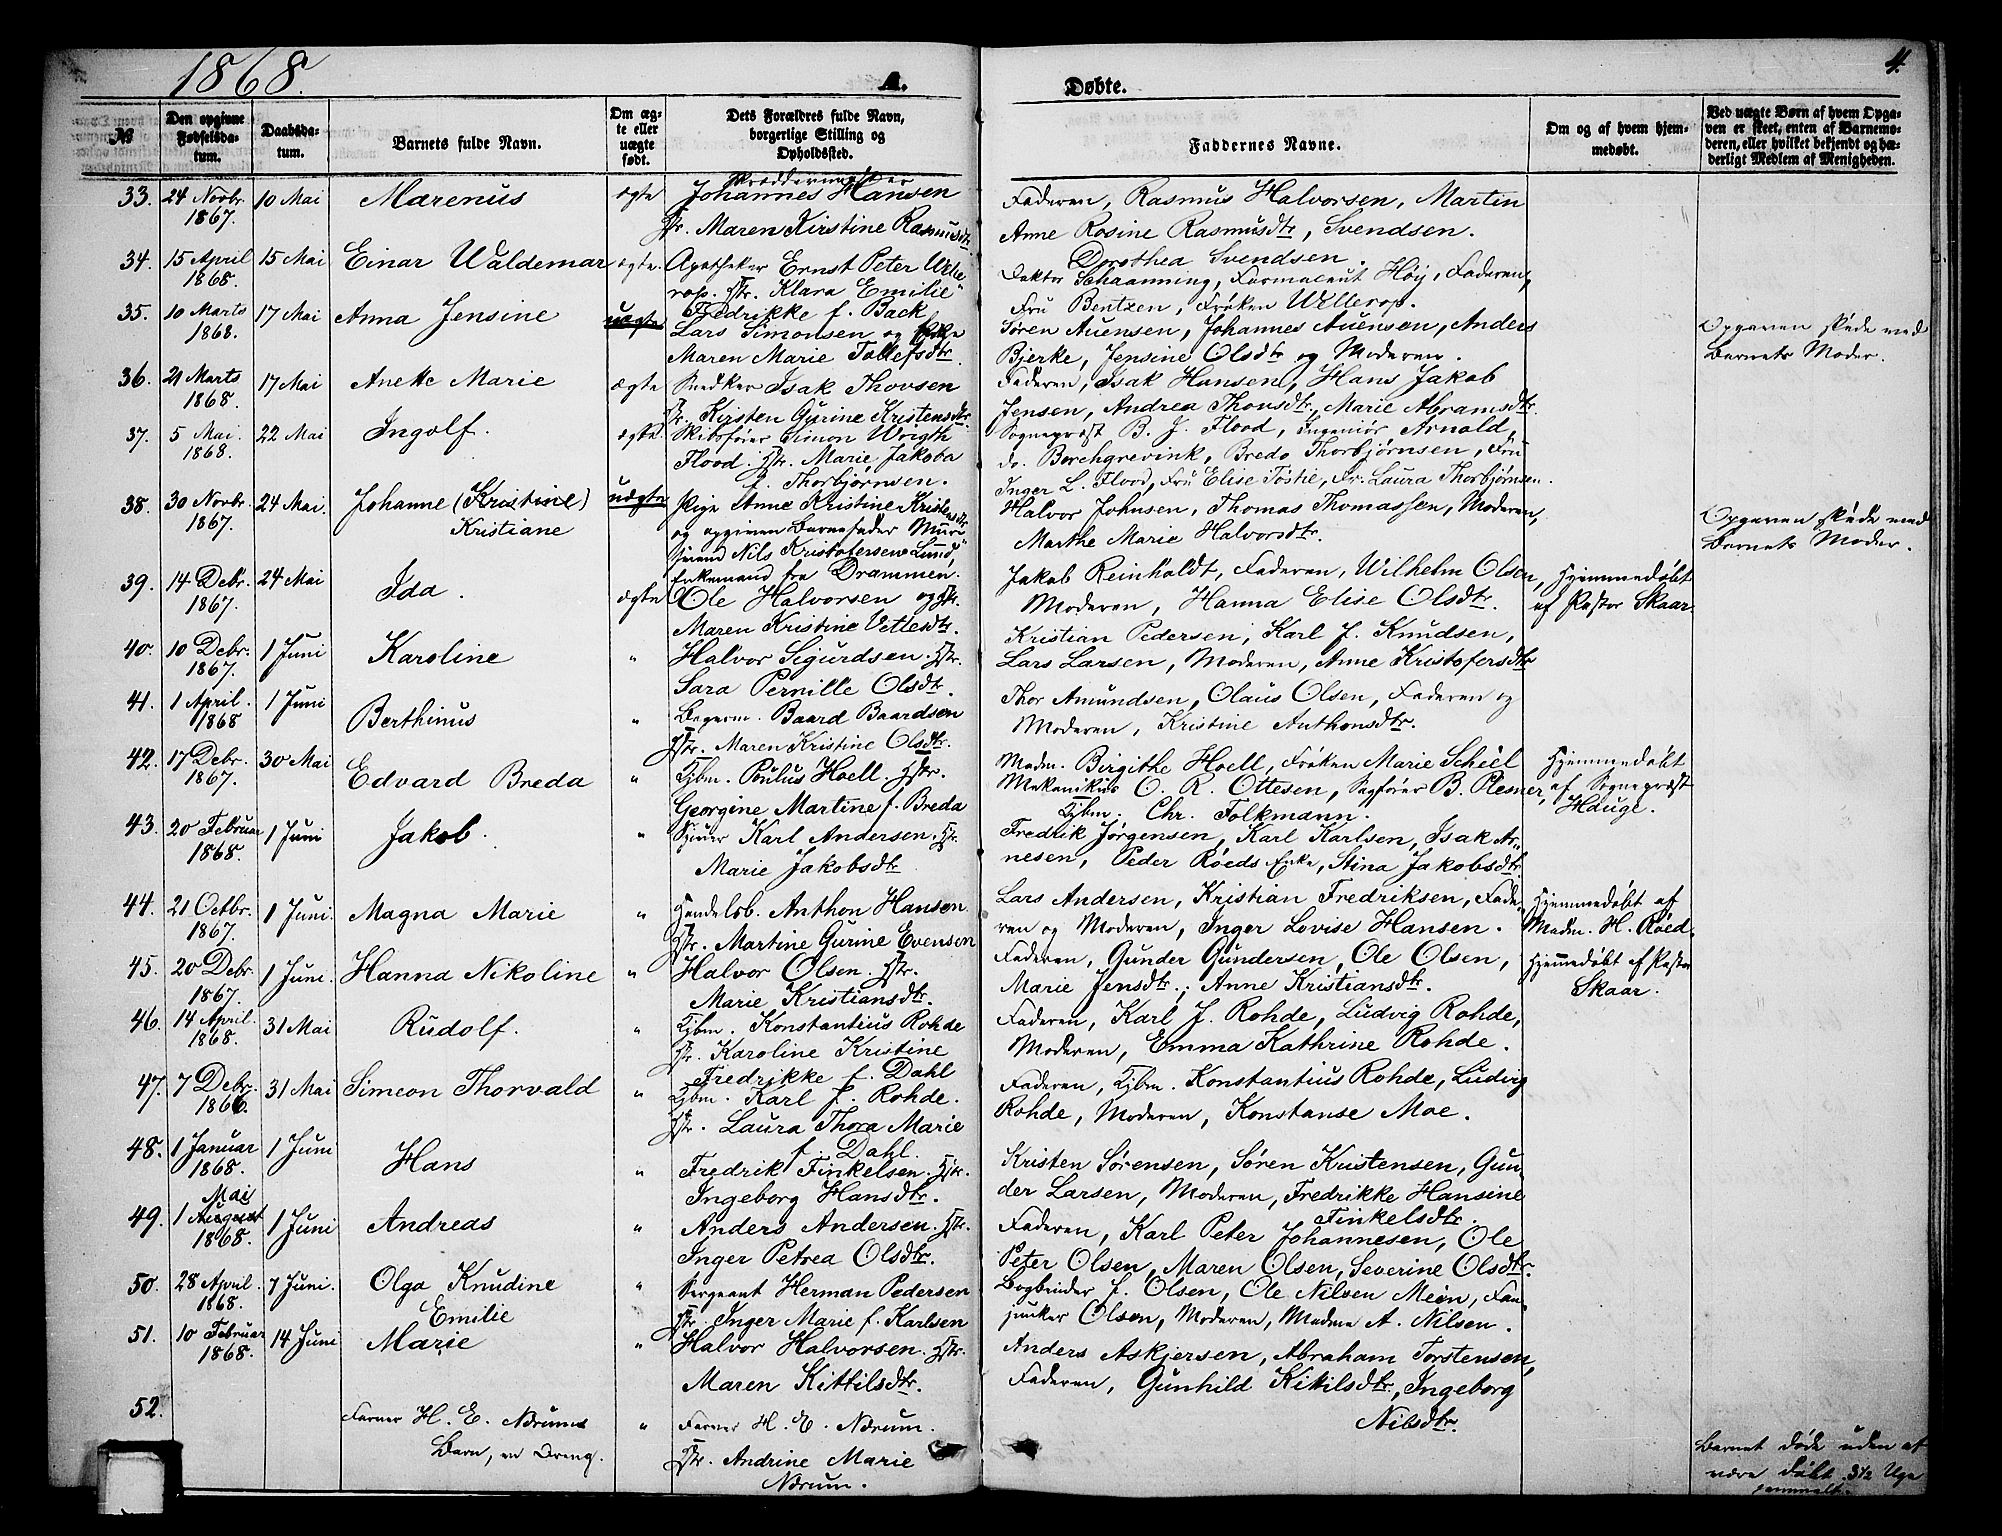 1868. A. Døbte. 4.
№
Den opgivne Fødselsdatum.
Daabsdatum.
Barnets fulde Navn.
Om ægte eller uægte født.
Dets Forældres fulde Navn, borgerlige Stilling og Opholdssted.
Faddernes Navne.
Om og af hvem hjemmedøbt.
Ved uægte Børn af hvem Opgaven er skeet, enten af Barnemoderen, eller hvilket bekjendt og hæderligt Medlem af Menigheden.
33. 24 Novbr. 1867. 10 Mai Marenus ægte
Skræddermester
Johannes Hansen
Hstr. Maren Kirstine Rasmusdtr
Faderen, Rasmus Halvorsen, Martin
Anne Rosine Rasmusdtr, Svendsen.
Dorothea Svendsen.
34. 15 April 1868. 15 Mai Einar Waldemar ægte.
Apotheker Ernst Peter Welle
rop. Hstr. Klara Emilie
Fredrikke f. Back
Doktor Schaanning, Farmaceut Höy, Faderen,
Fru Bentzen, Frøken Wellerop.
35. 10 Marts 1868. 17 Mai Anna Jensine uægte
Lars Simonsen og Pige
Maren Marie Tollefsdtr.
Søren Auensen, Johannes Auensen, Anders
Bjerke, Jensine Olsdtr og Moderen.
Opgaven skede ved
Barnets Moder.
36. 21 Marts 1868. 17 Mai Anette Marie ægte
Snedker Isak Thovsen
Hstr. Kirsten Gurine Kristensdtr.
Faderen, Isak Hansen, Hans Jakob
Jensen, Andrea Thovsdtr, Marie Abramsdtr.
37. 5 Mai. 1868. 22 Mai Ingolf. ægte.
Skibsfører Simon Wrigth
Flood. Hstr. Marie Jakoba
f. Thorbjørnsen.
Sogneprest B. J. Flood, Ingeniør Arnold,
do. Borchgrevink, Bredo Thorbjørnsen, Fru
Inger L. Flood, Fru Elise Tostie, Fr. Laura Thorbjørnsen.
38. 30 Novbr. 1867. 24 Mai. Johanne (Kristine) uægte
Kristiane
Pige Anne Kristine Kristensdtr
og opgiven Barnefader Mur
svend Nils Kristofersen Lund,
Enkemand fra Drammen.
Halvor Johnsen, Thomas Thomassen, Moderen,
Marthe Marie Halvorsdtr.
Opgaven skede ved
Barnets Moder.
39. 14 Debr. 1867. 24 Mai Ida. ægte
Ole Halvorsen og Hstr.
Maren Kristine Vetlesdtr.
Jakob Reinholdt, Faderen, Wilhelm Olsen,
Moderen, Hanna Elise Olsdtr.
Hjemmedøbt
af Pastor Skaar.
40. 10 Debr. 1867. 1 Juni Karoline "
Halvor Sigurdsen. Hstr.
Sara Pernille Olsdtr.
Kristian Pedersen, Karl J. Knudsen,
Lars Larsen, Moderen, Anne Kristofersdtr
41. 1 April. 1868 1 Juni Berthinus "
Bogerm. Baard Baardsen
Hstr. Maren Kristine Olsdtr.
Thor Amundsen, Olaus Olsen, Faderen og
Moderen, Kristine Anthonsdtr.
42. 17 Debr. 1867. 30 Mai Edvard Breda "
Kjbm. Poulus Hoell. Hstr.
Georgine Martine f. Breda
Madm. Birgithe Hoell, Frøken Marie Scheel
Mekanikus O. R. Ottesen, Sagfører B. Plesner,
Kjbm. Chr. Folkmann.
Hjemmedøbt
af Sogneprest
Hauge.
43. 20 Februar 1868. 1 Juni Jakob. "
Karl Andersen. Hstr.
Marie Jakobsdtr
Fredrik Jørgensen, Karl Karlsen, Isak Ar-
nesen, Peder Røeds Enke, Stina Jakobsdtr
44. 21 Octbr. 1867. 1 Juni. Magna Marie "
Handelsb. Anthon Hansen.
Hstr. Martine Gurine Evensen
Lars Andersen, Kristian Fredriksen, Fade-
ren og Moderen, Inger Lovise Hansen.
Hjemmedøbt af
Madm. H. Røed.
45. 20 Debr. 1867. 1 Juni. Hanna Nikoline "
Halvor Olsen. Hstr.
Marie Kristiansdtr.
Faderen, Gunder Gundersen, Ole Olsen,
Marie Jensdtr., Anne Kristiansdtr.
Hjemmedøbt af Pastor
Skaar.
46. 14 April. 1868. 31 Mai Rudolf. "
Kjbm. Konstantius Rohde
Hstr. Karoline Kristine
Fredrikke f. Dahl
Faderen, Karl J. Rohde, Ludvig Rohde,
Moderen, Emma Kathrine Rohde.
47. 7 Debr. 1866. 31 Mai Simeon Thorvald "
Kjbm. Karl J. Rohde.
Hstr. Laura Thora Marie
f. Dahl.
Faderen, Kjbm. Konstantius Rohde, Ludvig
Rohde, Moderen, Konstanse Moe.
48. 1 Januar 1868. 1 Juni Hans "
Fredrik Finkelsen. Hstr.
Ingeborg Hansdtr.
Kristen Sørensen, Søren Kristensen, Gun-
der Larsen, Moderen, Fredrikke Hansine
Finkelsdtr.
49. Mai 1 August 1868. 1 Juni Andreas "
Anders Andersen. Hstr.
Inger Petrea Olsdtr.
Faderen, Karl Peter Johannesen, Ole
Peter Olsen, Maren Olsen, Severine Olsdtr.
50. 28 April. 1868. 7 Juni. Olga Knudine "
Emilie
Sergeant Herman Pedersen
Hstr. Inger Marie f. Karlsen
Bogbinder J. Olsen, Ole Nilsen Meen, Fan-
junker Olsen, Moderen, Madme A. Nilsen.
51. 10 Februar 1868. 14 Juni Marie "
Halvor Halvorsen. Hstr.
Maren Kittilsdtr.
Anders Askjersen, Abraham Torstensen,
Faderen, Gunhild Kittilsdtr, Ingeborg
Nilsdtr.
52. Farver H. E. Nærums "
Barn, en Dreng.
Farver H. E. Nærum.
Hstr. Andrine Marie
Nærum.
Barnet døde uden at
være døbt. 3½ Uge
gammelt.